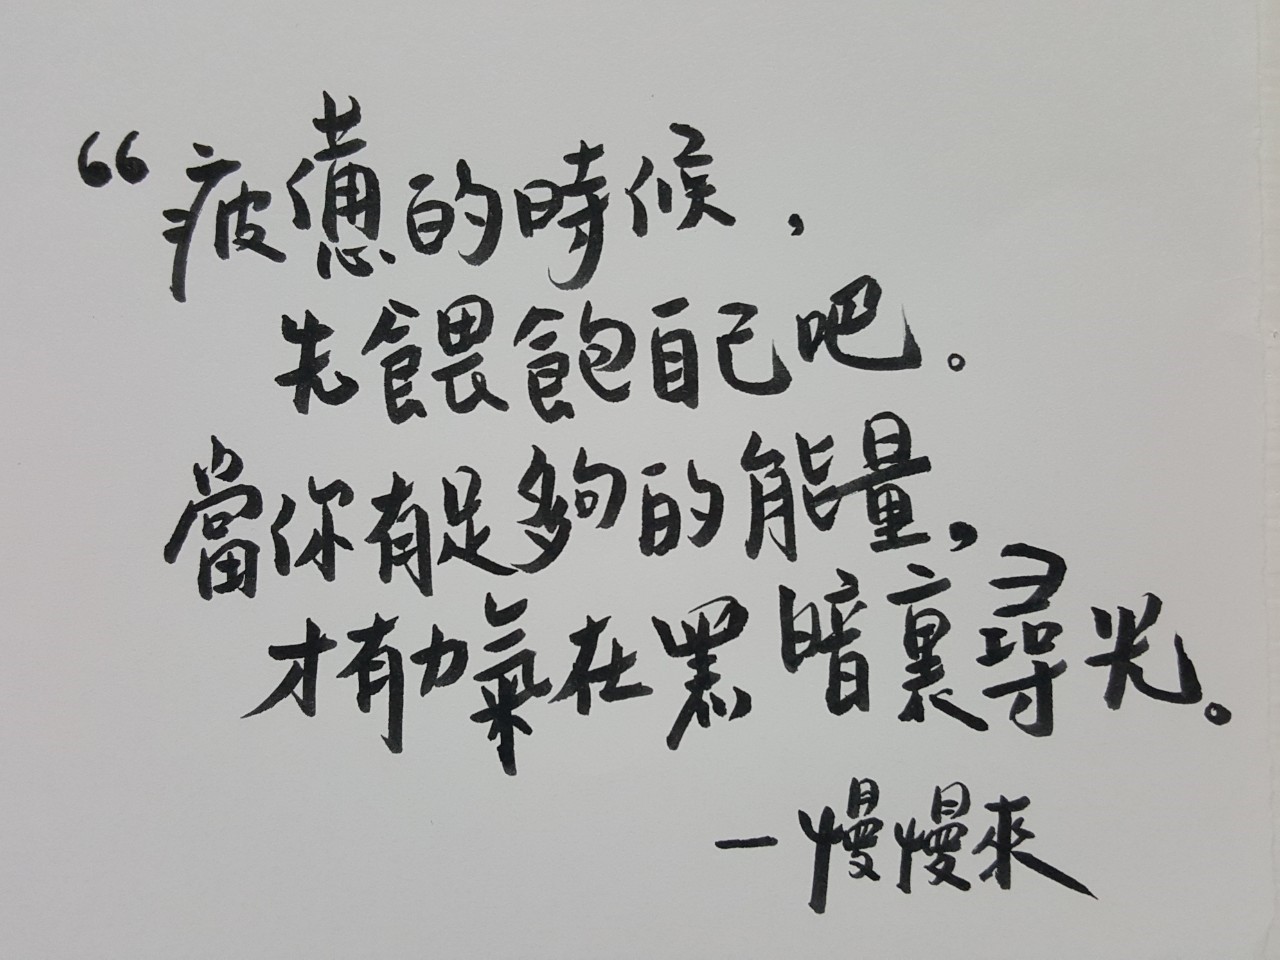 “疲憊的時候，
先餵飽自己吧。
當你有足夠的能量，
才有力氣在黑暗裏尋光。
—慢慢來